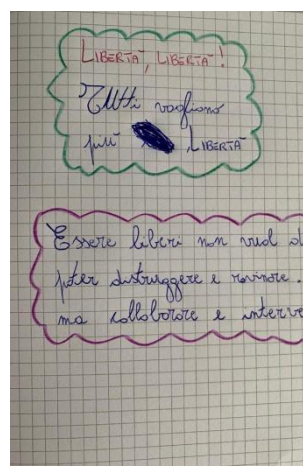 LIBERTÀ, LIBERTÀ!
Tutti vogliono
più LIBERTÀ
Essere liberi non vuol d
poter distruggere e rovinare.
ma collaborare e interve